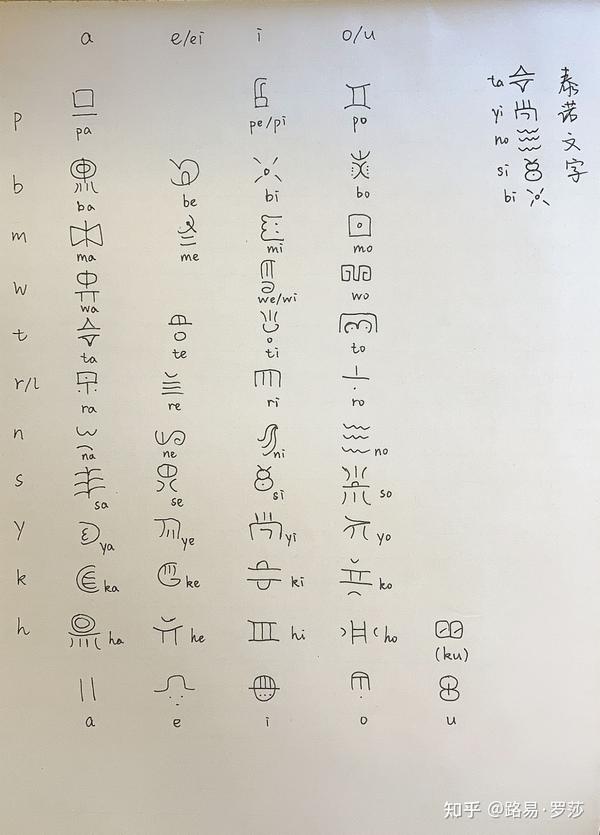 a e/ei i o/u
p pa pe/pi po
b ba be bi bo
m ma me mi mo
w wa we/wi wo
t ta te ti to
r/l ra re ri ro
n na ne ni no
s sa se si so
y ya ye yi yo
k ka ke ki ko
h ha he hi ho (ku)
a e i o u
泰诺文字
ta
yi
no
si
bi
知乎 @路易·罗莎